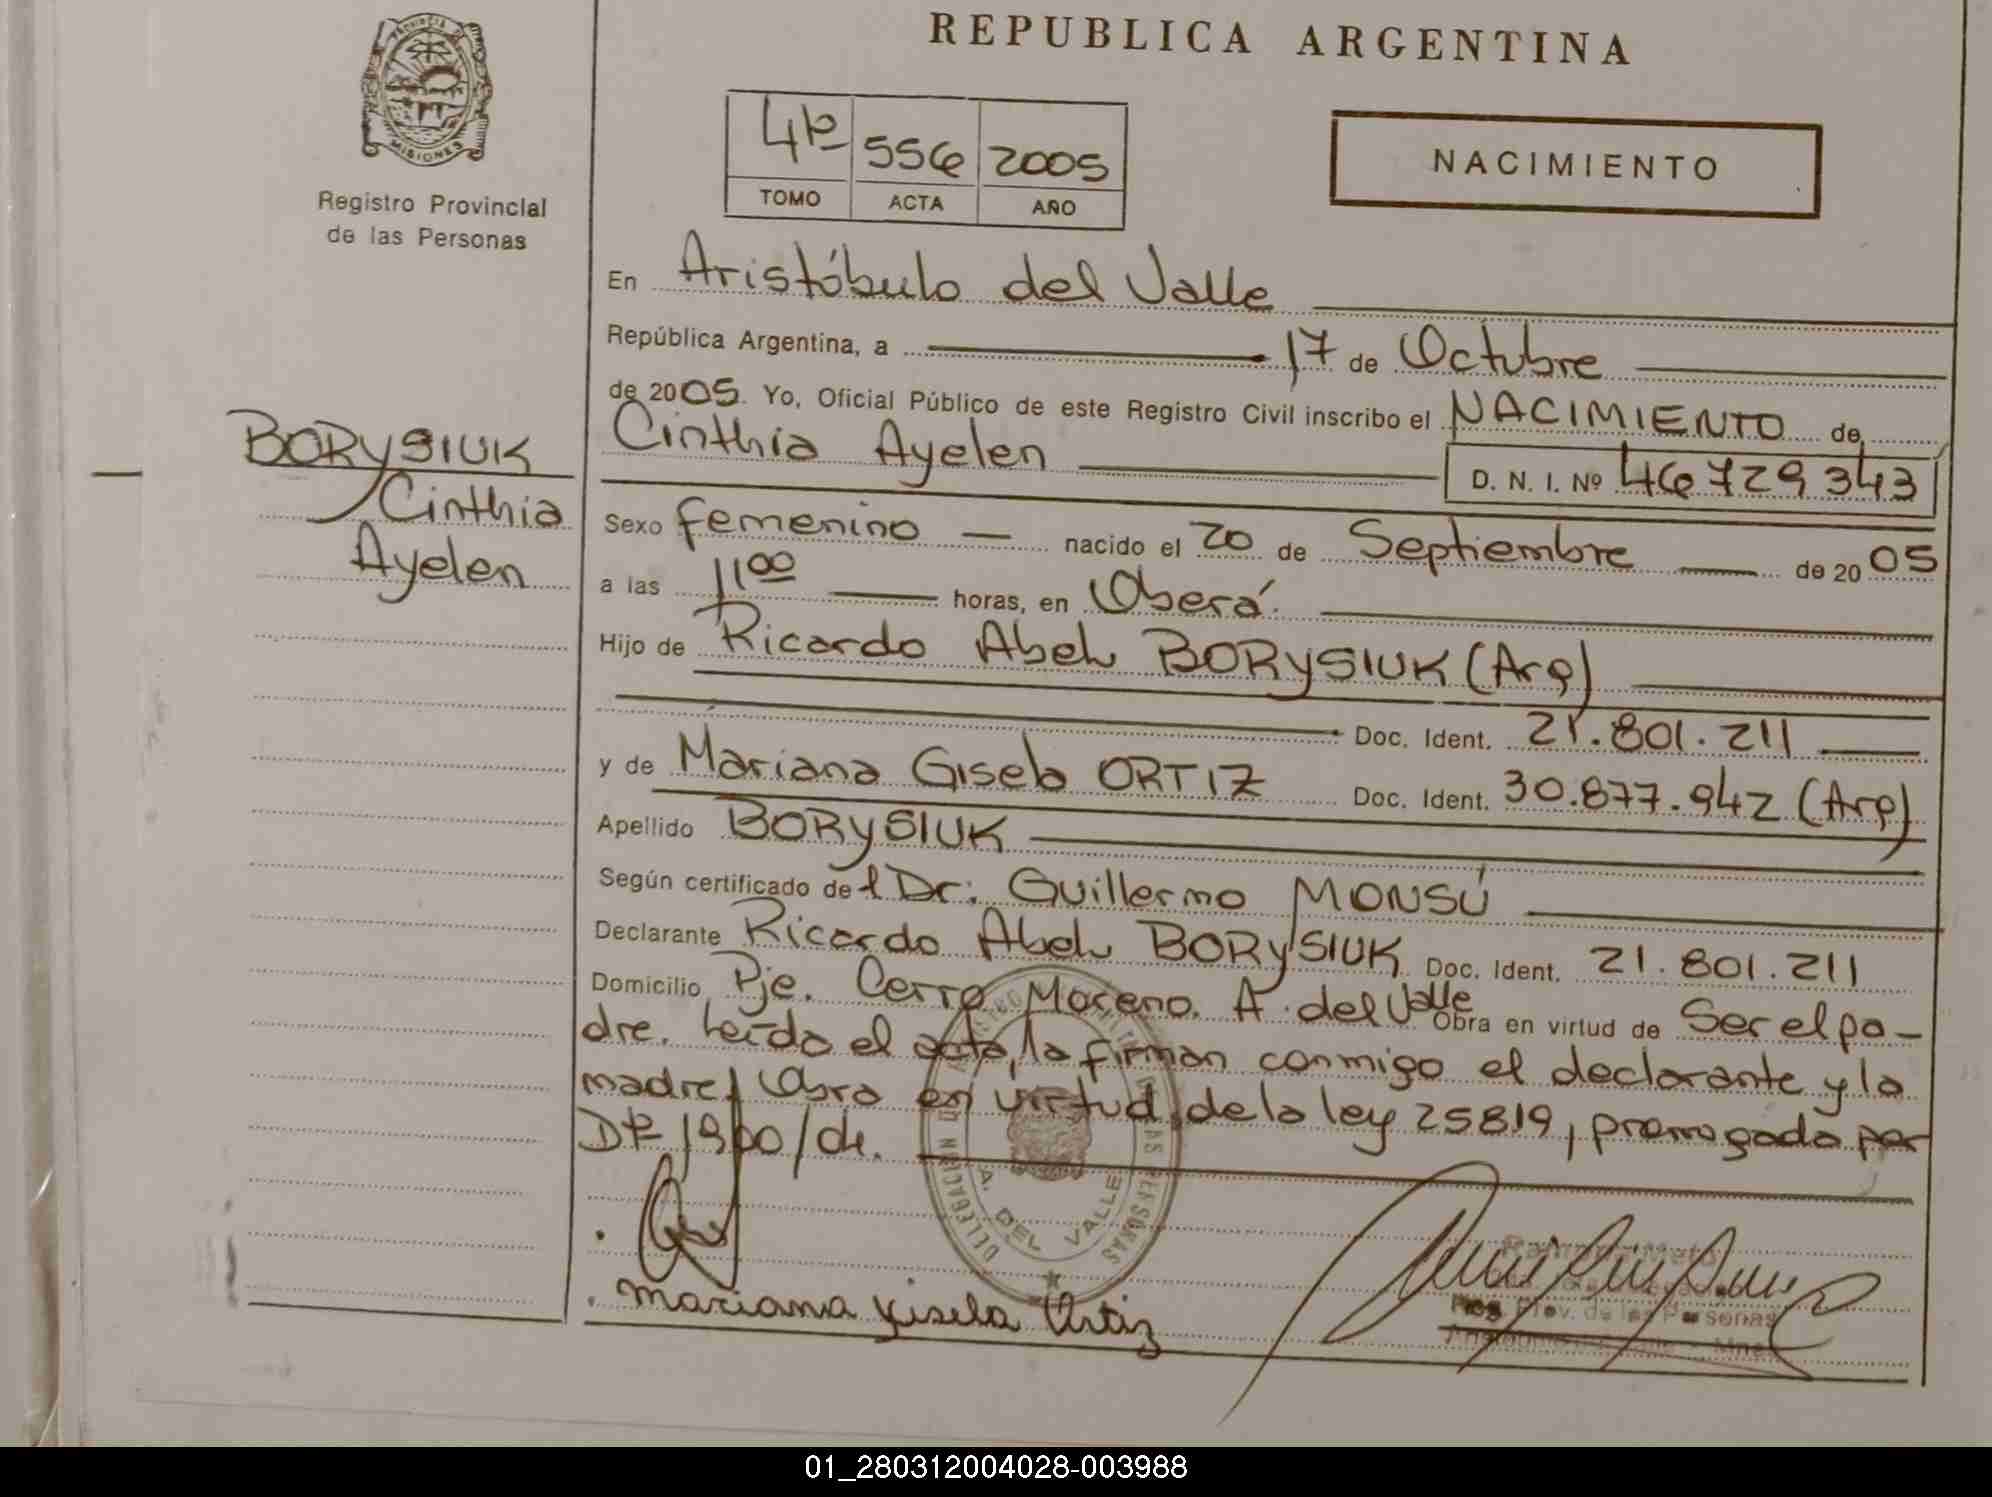 PROVINCIA DE
MISIONES
Registro Provincial
de las Personas
REPUBLICA ARGENTINA
4º 556 2005
TOMO ACTA AÑO
NACIMIENTO
En Aristóbulo del Valle
República Argentina, a 17 de Octubre
de 2005. Yo, Oficial Público de este Registro Civil inscribo el NACIMIENTO de
BORYSIUK
Cinthia
Ayelen
Cinthia Ayelen D. N. I. Nº 46729343
Sexo femenino nacido el 20 de Septiembre de 2005
a las 11 00 horas, en Oberá.
Hijo de Ricardo Abel BORYSIUK (Arg)
Doc. Ident. 21.801.211
y de Mariana Gisela ORTIZ Doc. Ident. 30.877.942 (Arg)
Apellido BORYSIUK
Según certificado del Dr: Guillermo MONSÚ
Declarante Ricardo Abel BORYSIUK Doc. Ident. 21.801.211
Domicilio Pje. Cerro Moreno. A. del Valle Obra en virtud de Ser el pa-
dre. Leída el acta, la firman conmigo el declarante y la
madre/ Obra en virtud de la ley 25819, prorrogada por
Dto 1900/04.
A. DEL VALLE
DELEGACION
Mariana Gisela Ortiz
Reg. Prov. de las Personas
01_280312004028-003988